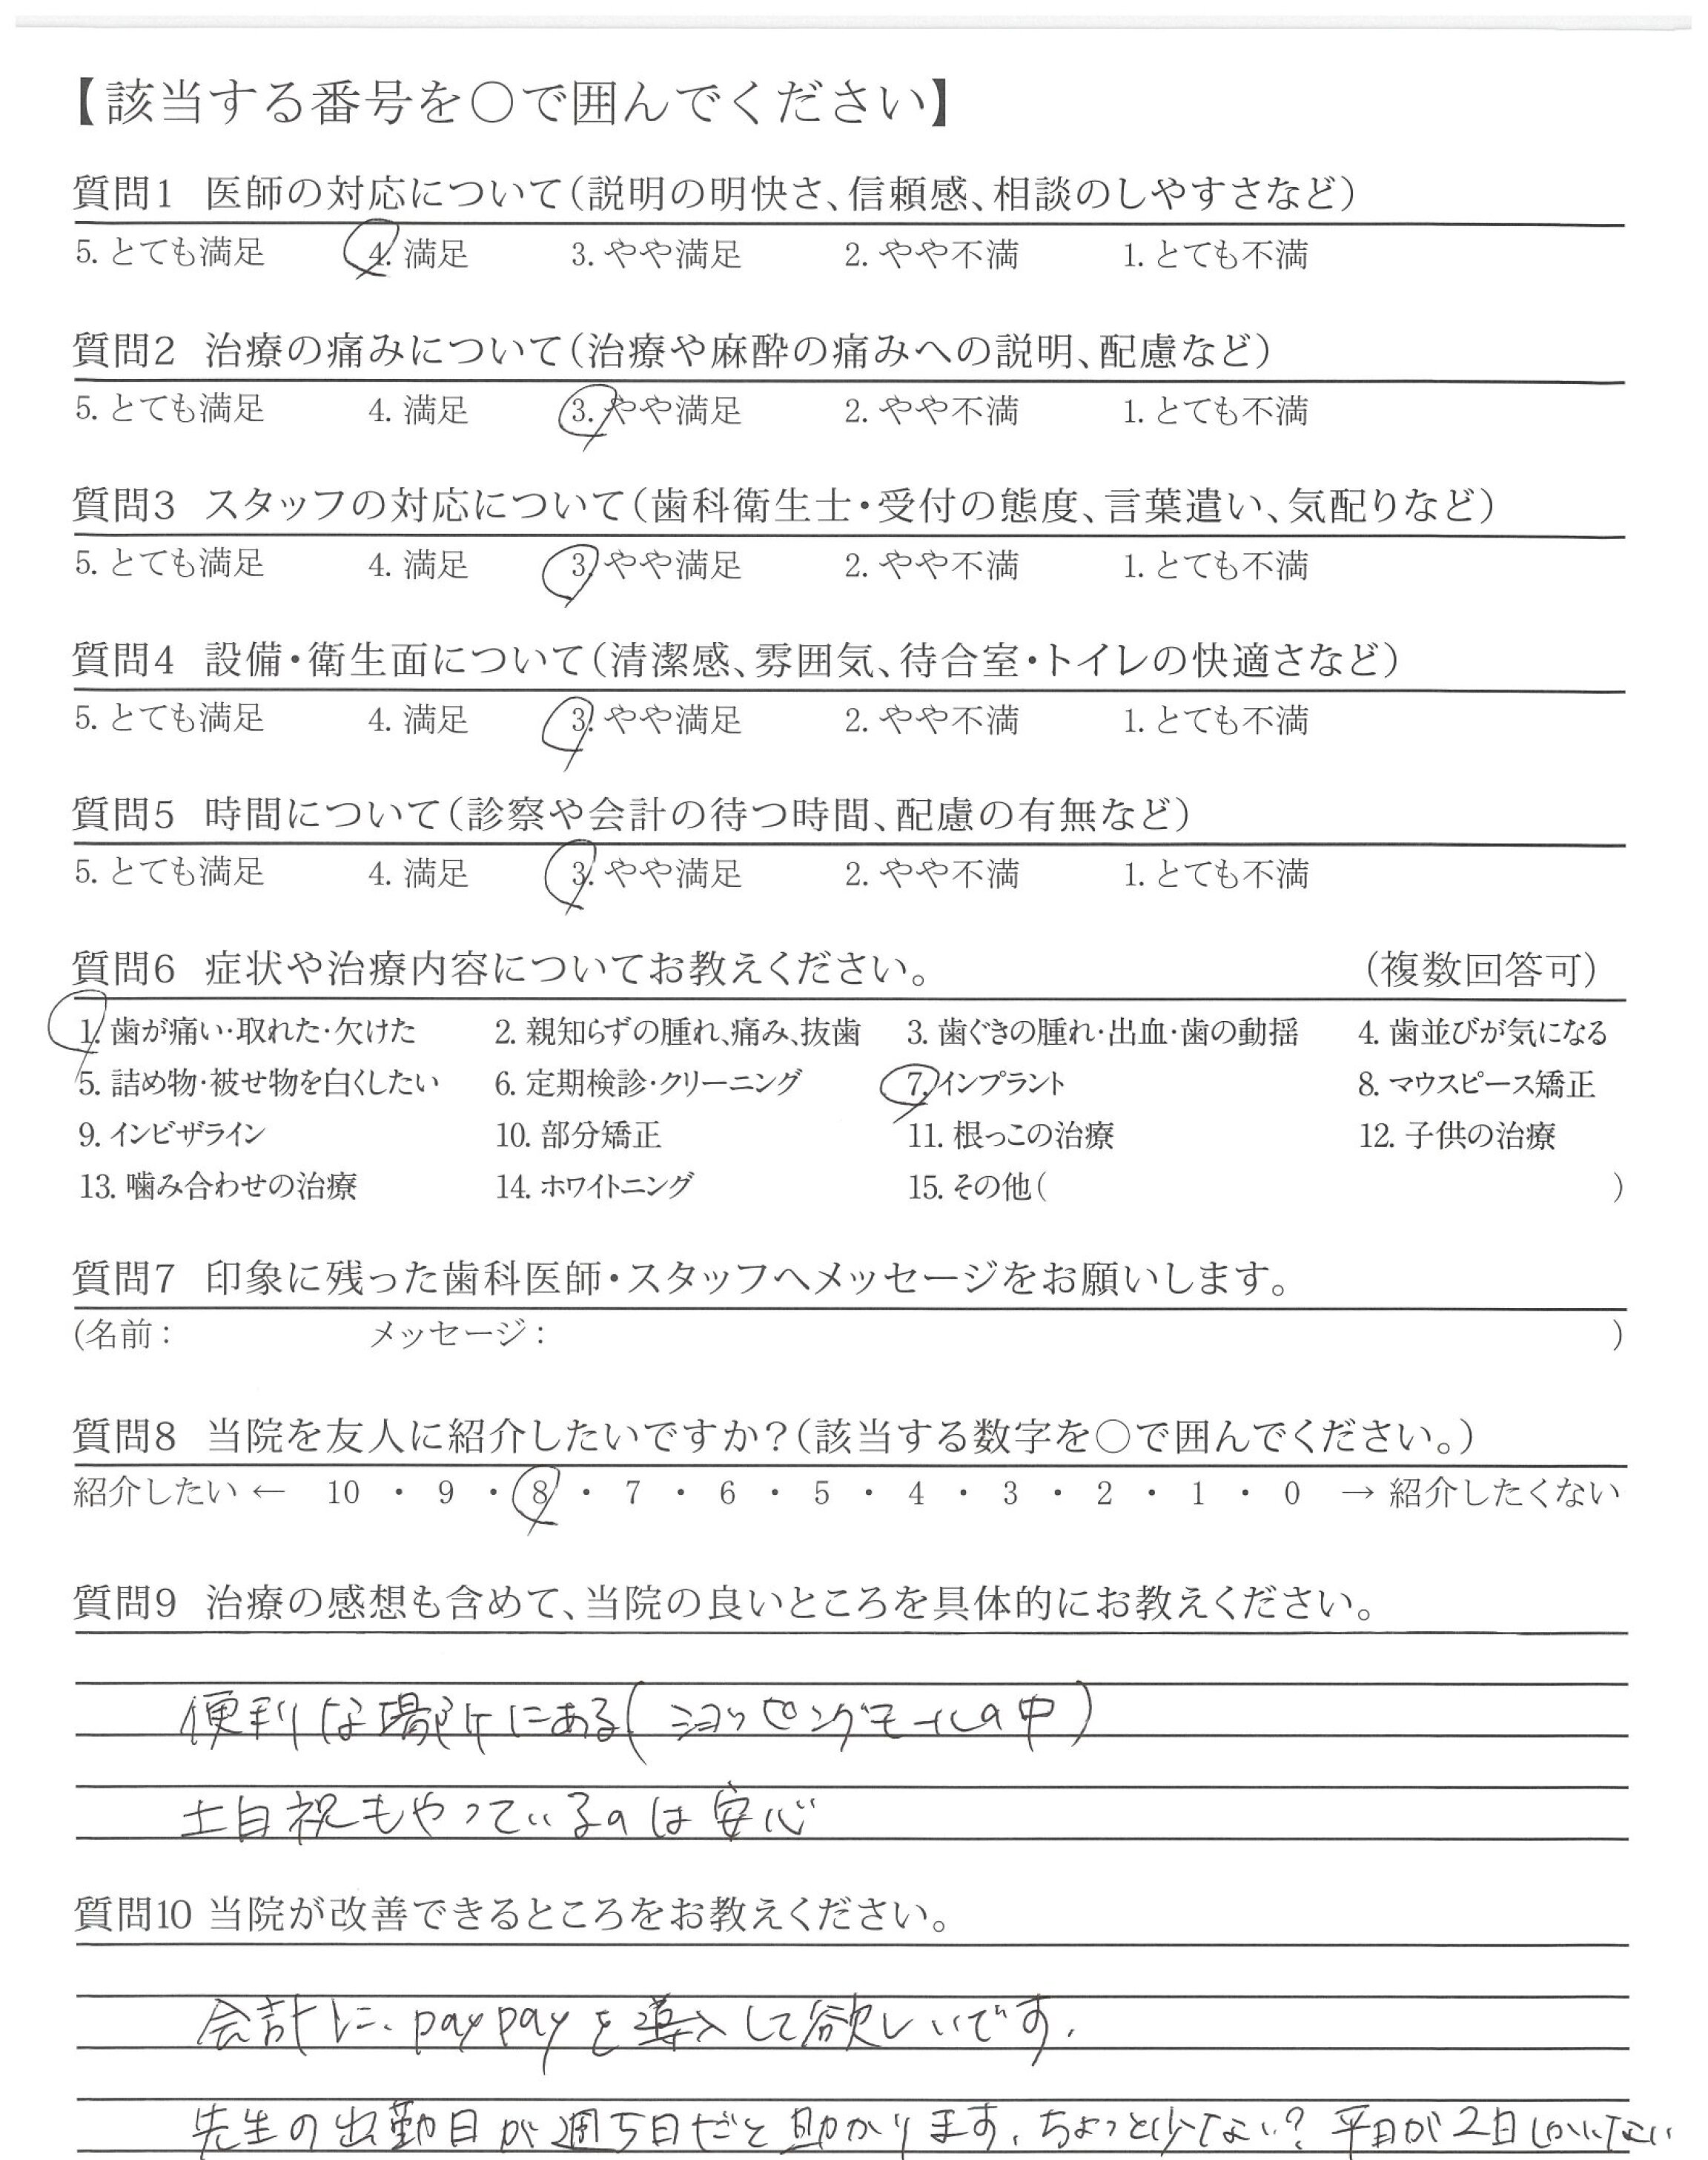 【該当する番号を○で囲んでください】
質問1 医師の対応について(説明の明快さ、信頼感、相談のしやすさなど)
5. とても満足 4. 満足 3. やや満足 2. やや不満 1. とても不満
質問2 治療の痛みについて(治療や麻酔の痛みへの説明、配慮など)
5. とても満足 4. 満足 3. やや満足 2. やや不満 1. とても不満
質問3 スタッフの対応について(歯科衛生士・受付の態度、言葉遣い、気配りなど)
5. とても満足 4. 満足 3. やや満足 2. やや不満 1. とても不満
質問4 設備・衛生面について(清潔感、雰囲気、待合室・トイレの快適さなど)
5. とても満足 4. 満足 3. やや満足 2. やや不満 1. とても不満
質問5 時間について(診察や会計の待つ時間、配慮の有無など)
5. とても満足 4. 満足 3. やや満足 2. やや不満 1. とても不満
質問6 症状や治療内容についてお教えください。 (複数回答可)
1. 歯が痛い・取れた・欠けた 2. 親知らずの腫れ、痛み、抜歯 3. 歯ぐきの腫れ・出血・歯の動揺 4. 歯並びが気になる
5. 詰め物・被せ物を白くしたい 6. 定期検診・クリーニング 7. インプラント 8. マウスピース矯正
9. インビザライン 10. 部分矯正 11. 根っこの治療 12. 子供の治療
13. 噛み合わせの治療 14. ホワイトニング 15. その他( )
質問7 印象に残った歯科医師・スタッフへメッセージをお願いします。
(名前: メッセージ: )
質問8 当院を友人に紹介したいですか?(該当する数字を○で囲んでください。)
紹介したい ← 10 ・ 9 ・ 8 ・ 7 ・ 6 ・ 5 ・ 4 ・ 3 ・ 2 ・ 1 ・ 0 → 紹介したくない
質問9 治療の感想も含めて、当院の良いところを具体的にお教えください。
便利な場所にある(ショッピングモールの中)
土日祝もやっているのは安心
質問10 当院が改善できるところをお教えください。
会計に、paypayを導入して欲しいです.
先生の出勤日が週5日だと助かります. ちょっと少ない? 平日が2日しかいない